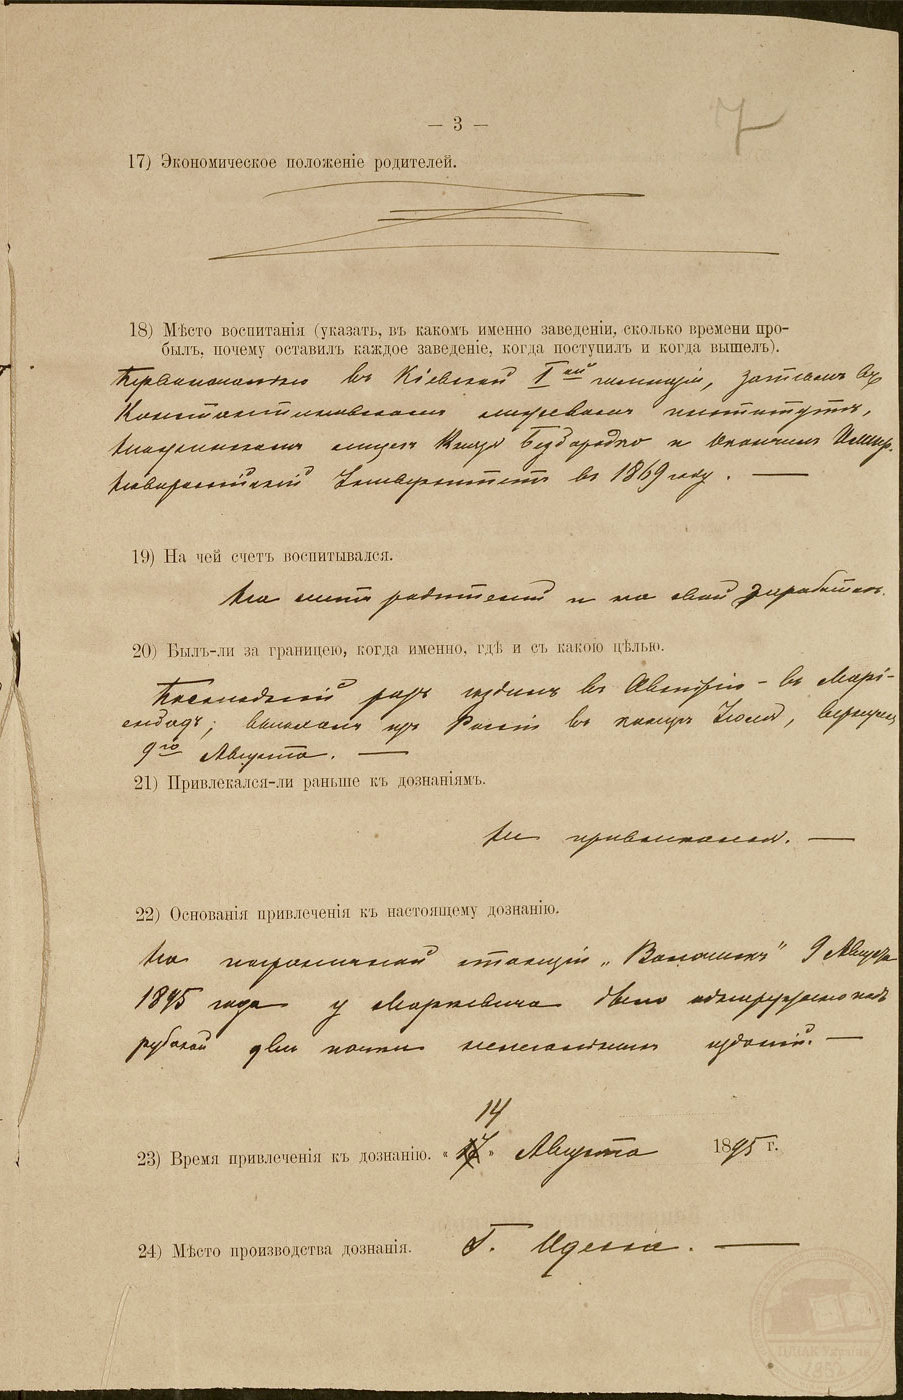 7
— 3 —
17) Экономическое положеніе родителей.
18) Мѣсто воспитанія (указать, въ какомъ именно заведеніи, сколько времени про-
былъ, почему оставилъ каждое заведеніе, когда поступилъ и когда вышелъ).
Первоначально въ Кіевской I-ой гимназіи, затѣмъ въ
Константиновскомъ межевомъ институтѣ,
лицеѣ Князя Безбородко и окончилъ Импер.
Новороссійскій Университетъ въ 1869 году. —
19) На чей счетъ воспитывался.
На счетъ родителей и на свой заработокъ.
20) Былъ-ли за границею, когда именно, гдѣ и съ какою цѣлью.
Послѣдній разъ ѣздилъ въ Австрію - въ Марі-
енбадъ; выѣхалъ изъ Россіи въ концѣ Іюля,
9го Августа. —
21) Привлекался-ли раньше къ дознаніямъ.
Не привлекался. —
22) Основанія привлеченія къ настоящему дознанію.
На пограничной станціи „Волочискъ" 9 Августа
1895 года у Маркевича было обнаружено подъ
рубахой двѣ пачки нелегальныхъ изданій. —
14
23) Время привлеченія къ дознанію. « » Августа 1895 г.
24) Мѣсто производства дознанія. Г. Одесса. —
ЦДІАК України
1852